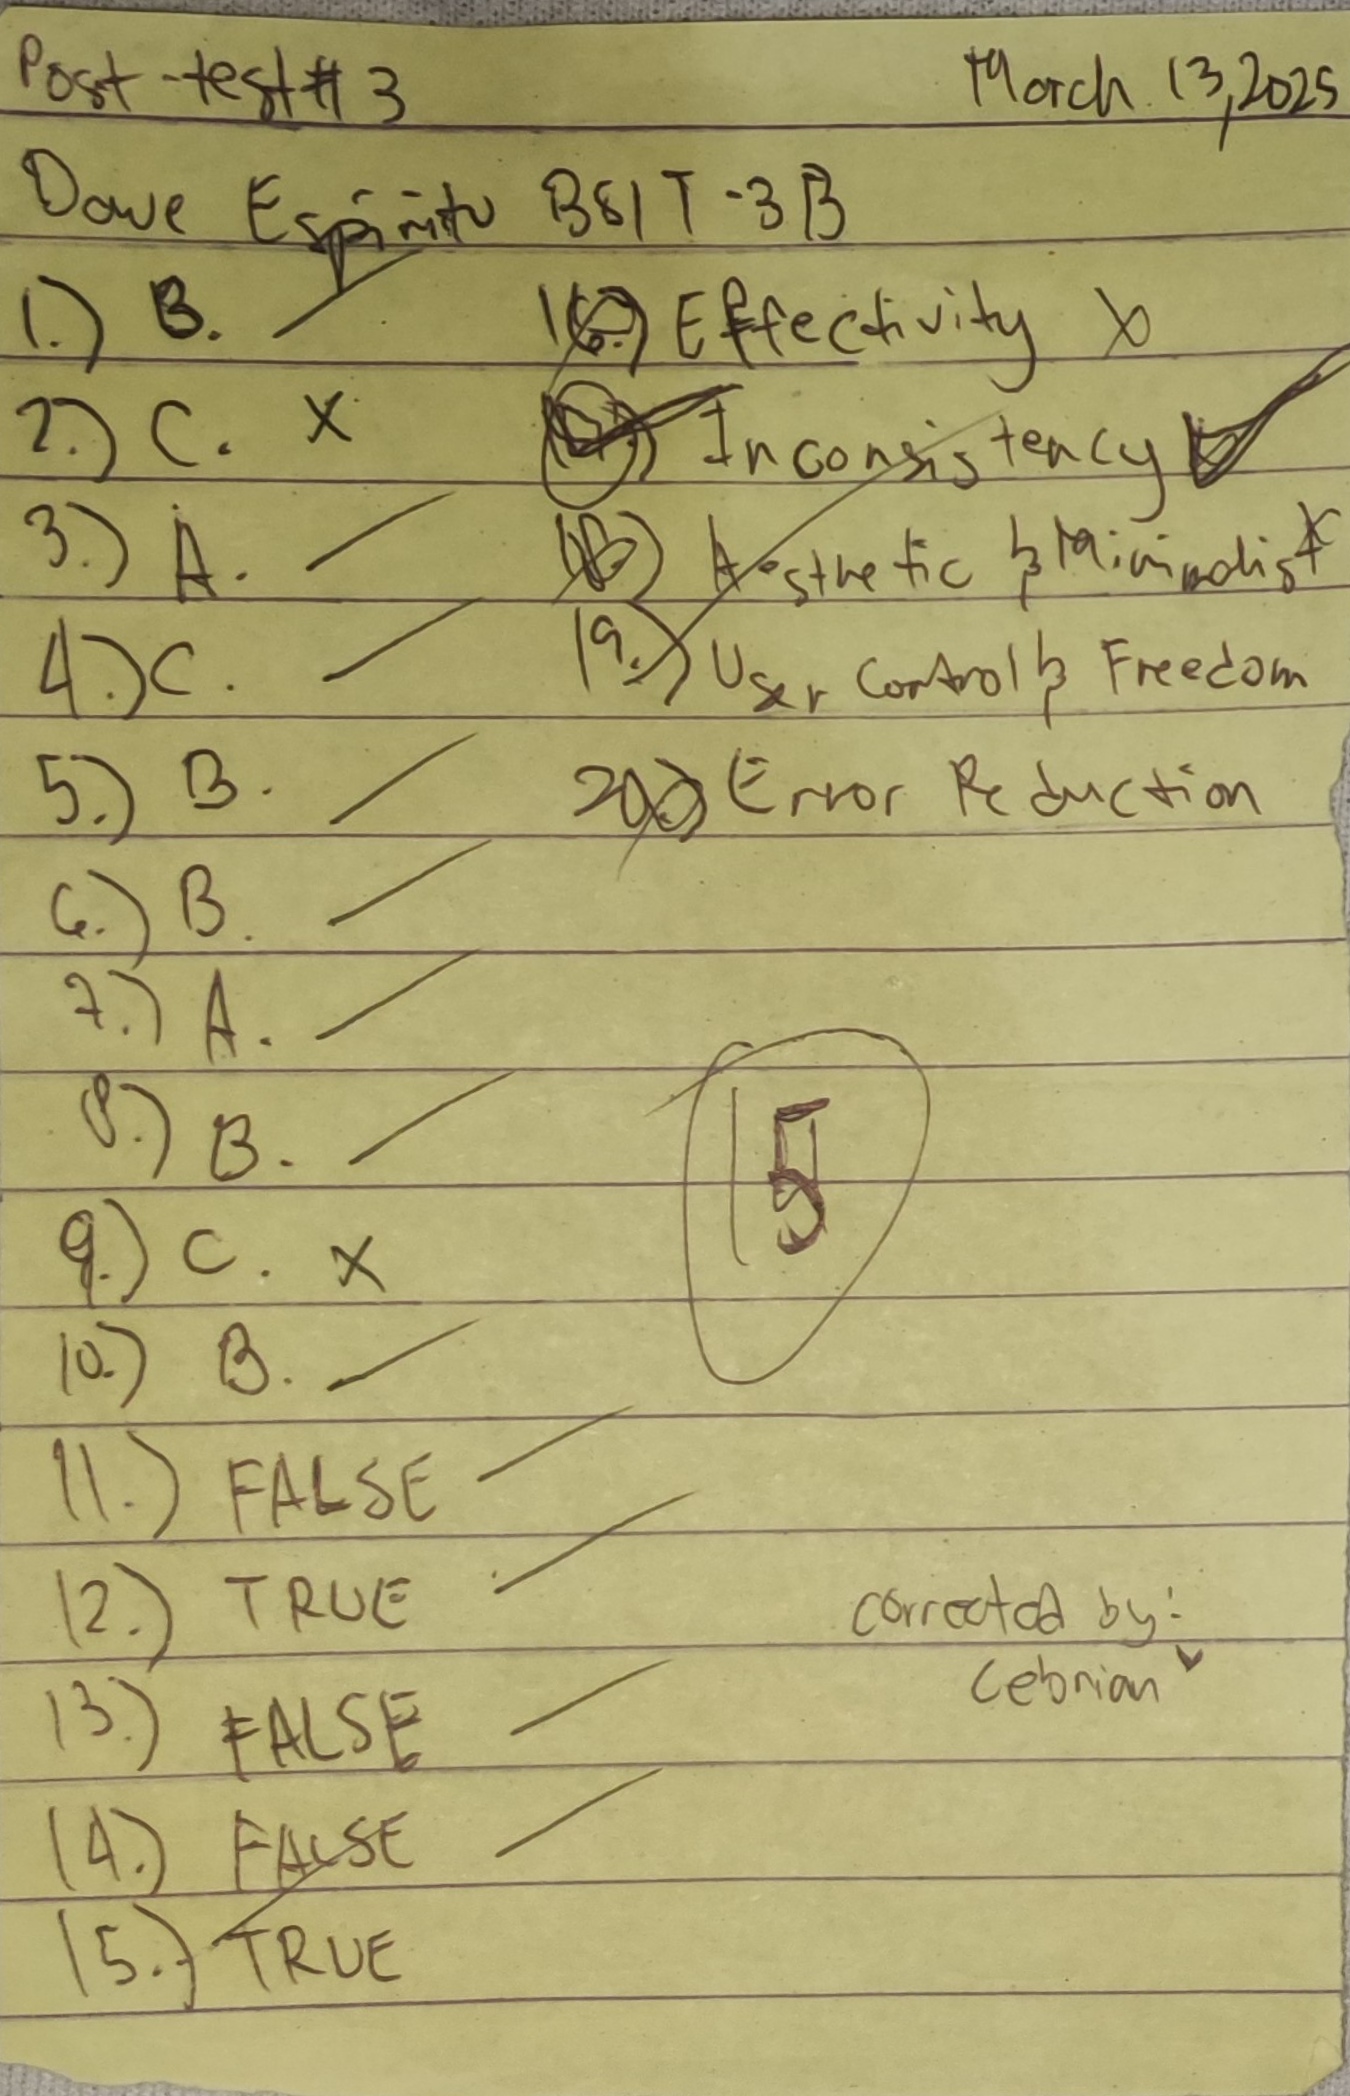 Post-test #3 March 13, 2025
Dave Espiritu BSIT-3B
1.) B.
2.) C. x
3.) A.
4.) C.
5.) B.
6.) B.
7.) A.
8.) B.
9.) C. x
10.) B.
11.) FALSE
12.) TRUE
13.) FALSE
14.) FALSE
15.) TRUE
16.) Effectivity x
17.) Inconsistency
18.) Aesthetic & Minimalist x
19.) User Control & Freedom
20.) Error Reduction
15
corrected by:
Cebrian